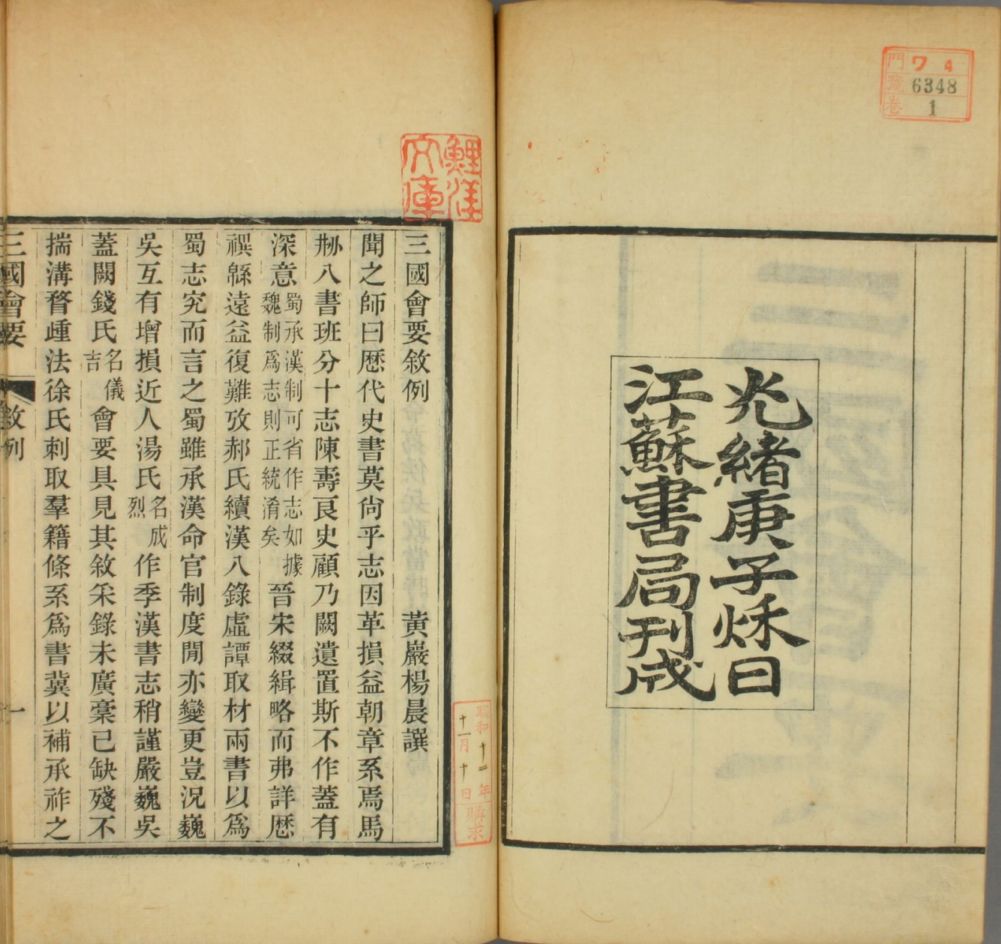 門 ワ 4
號 6348
卷 1
光緒庚子秌日
江蘇書局刊成
鯉洋文庫
三國會要敘例 黃巖楊晨譔
聞之師曰歷代史書莫尙乎志因革損益朝章系焉馬
刱八書班分十志陳壽良史顧乃闕遺置斯不作蓋有
深意蜀承漢制可省作志如據魏制爲志則正統淆矣晉宋綴緝略而弗詳歷
禩緜遠益復難攷郝氏續漢八錄虛譚取材兩書以爲
蜀志究而言之蜀雖承漢命官制度閒亦變更豈況巍
吳互有增損近人湯氏名成烈作季漢書志稍謹嚴巍吳
蓋闕錢氏名儀吉會要具見其敘采錄未廣稾已缺殘不
揣溝瞀踵法徐氏刺取羣籍條系爲書冀以補承祚之
三國會要 敘例 一
昭和 年
十一月十日
購求